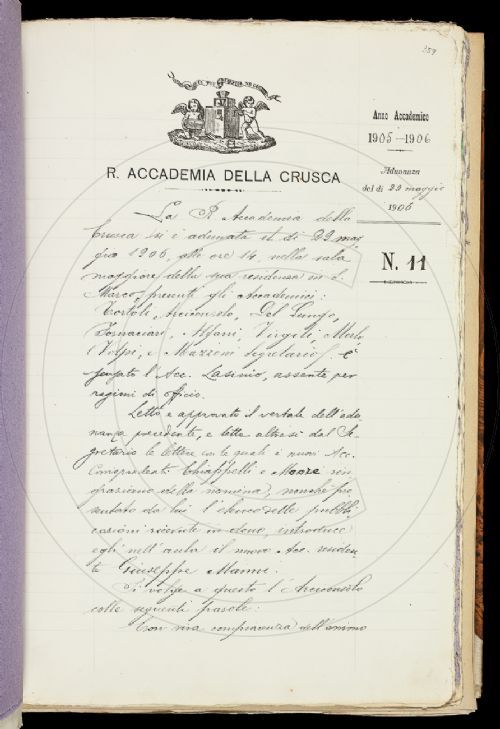 359
R. ACCADEMIA DELLA CRUSCA
Anno Accademico
1905-1906
Adunanza
del dì 22 maggio
1906
N. 11
La R. Accademia della
Crusca si è adunata il dì 22 mag-
gio 1906, alle ore 14, nella sala
maggiore della sua residenza in S.
Marco, presenti gli accademici:
Tortoli Arciconsolo, Del Lungo,
Fornaciari, Alfani, Virgili,
Volpi, e Mazzoni segretario. È
scusato l'Acc. Lasinio, assente per
ragioni di officio.
Letto e approvato il verbale dell'adu-
nanza precedente, e lette altresì dal Se-
gretario le lettere con le quali i nuovi Acc.
Corrispondenti Chiappelli e Moore rin-
graziano della nomina, nonché pre-
sentato da lui l'elenco delle pubbli-
cazioni ricevute in dono, introduce
egli nell'aula il nuovo Acc. residen-
te Giuseppe Manni.
Si volge a questo l'Arciconsolo
colle seguenti parole:
Con viva compiacenza dell'animo